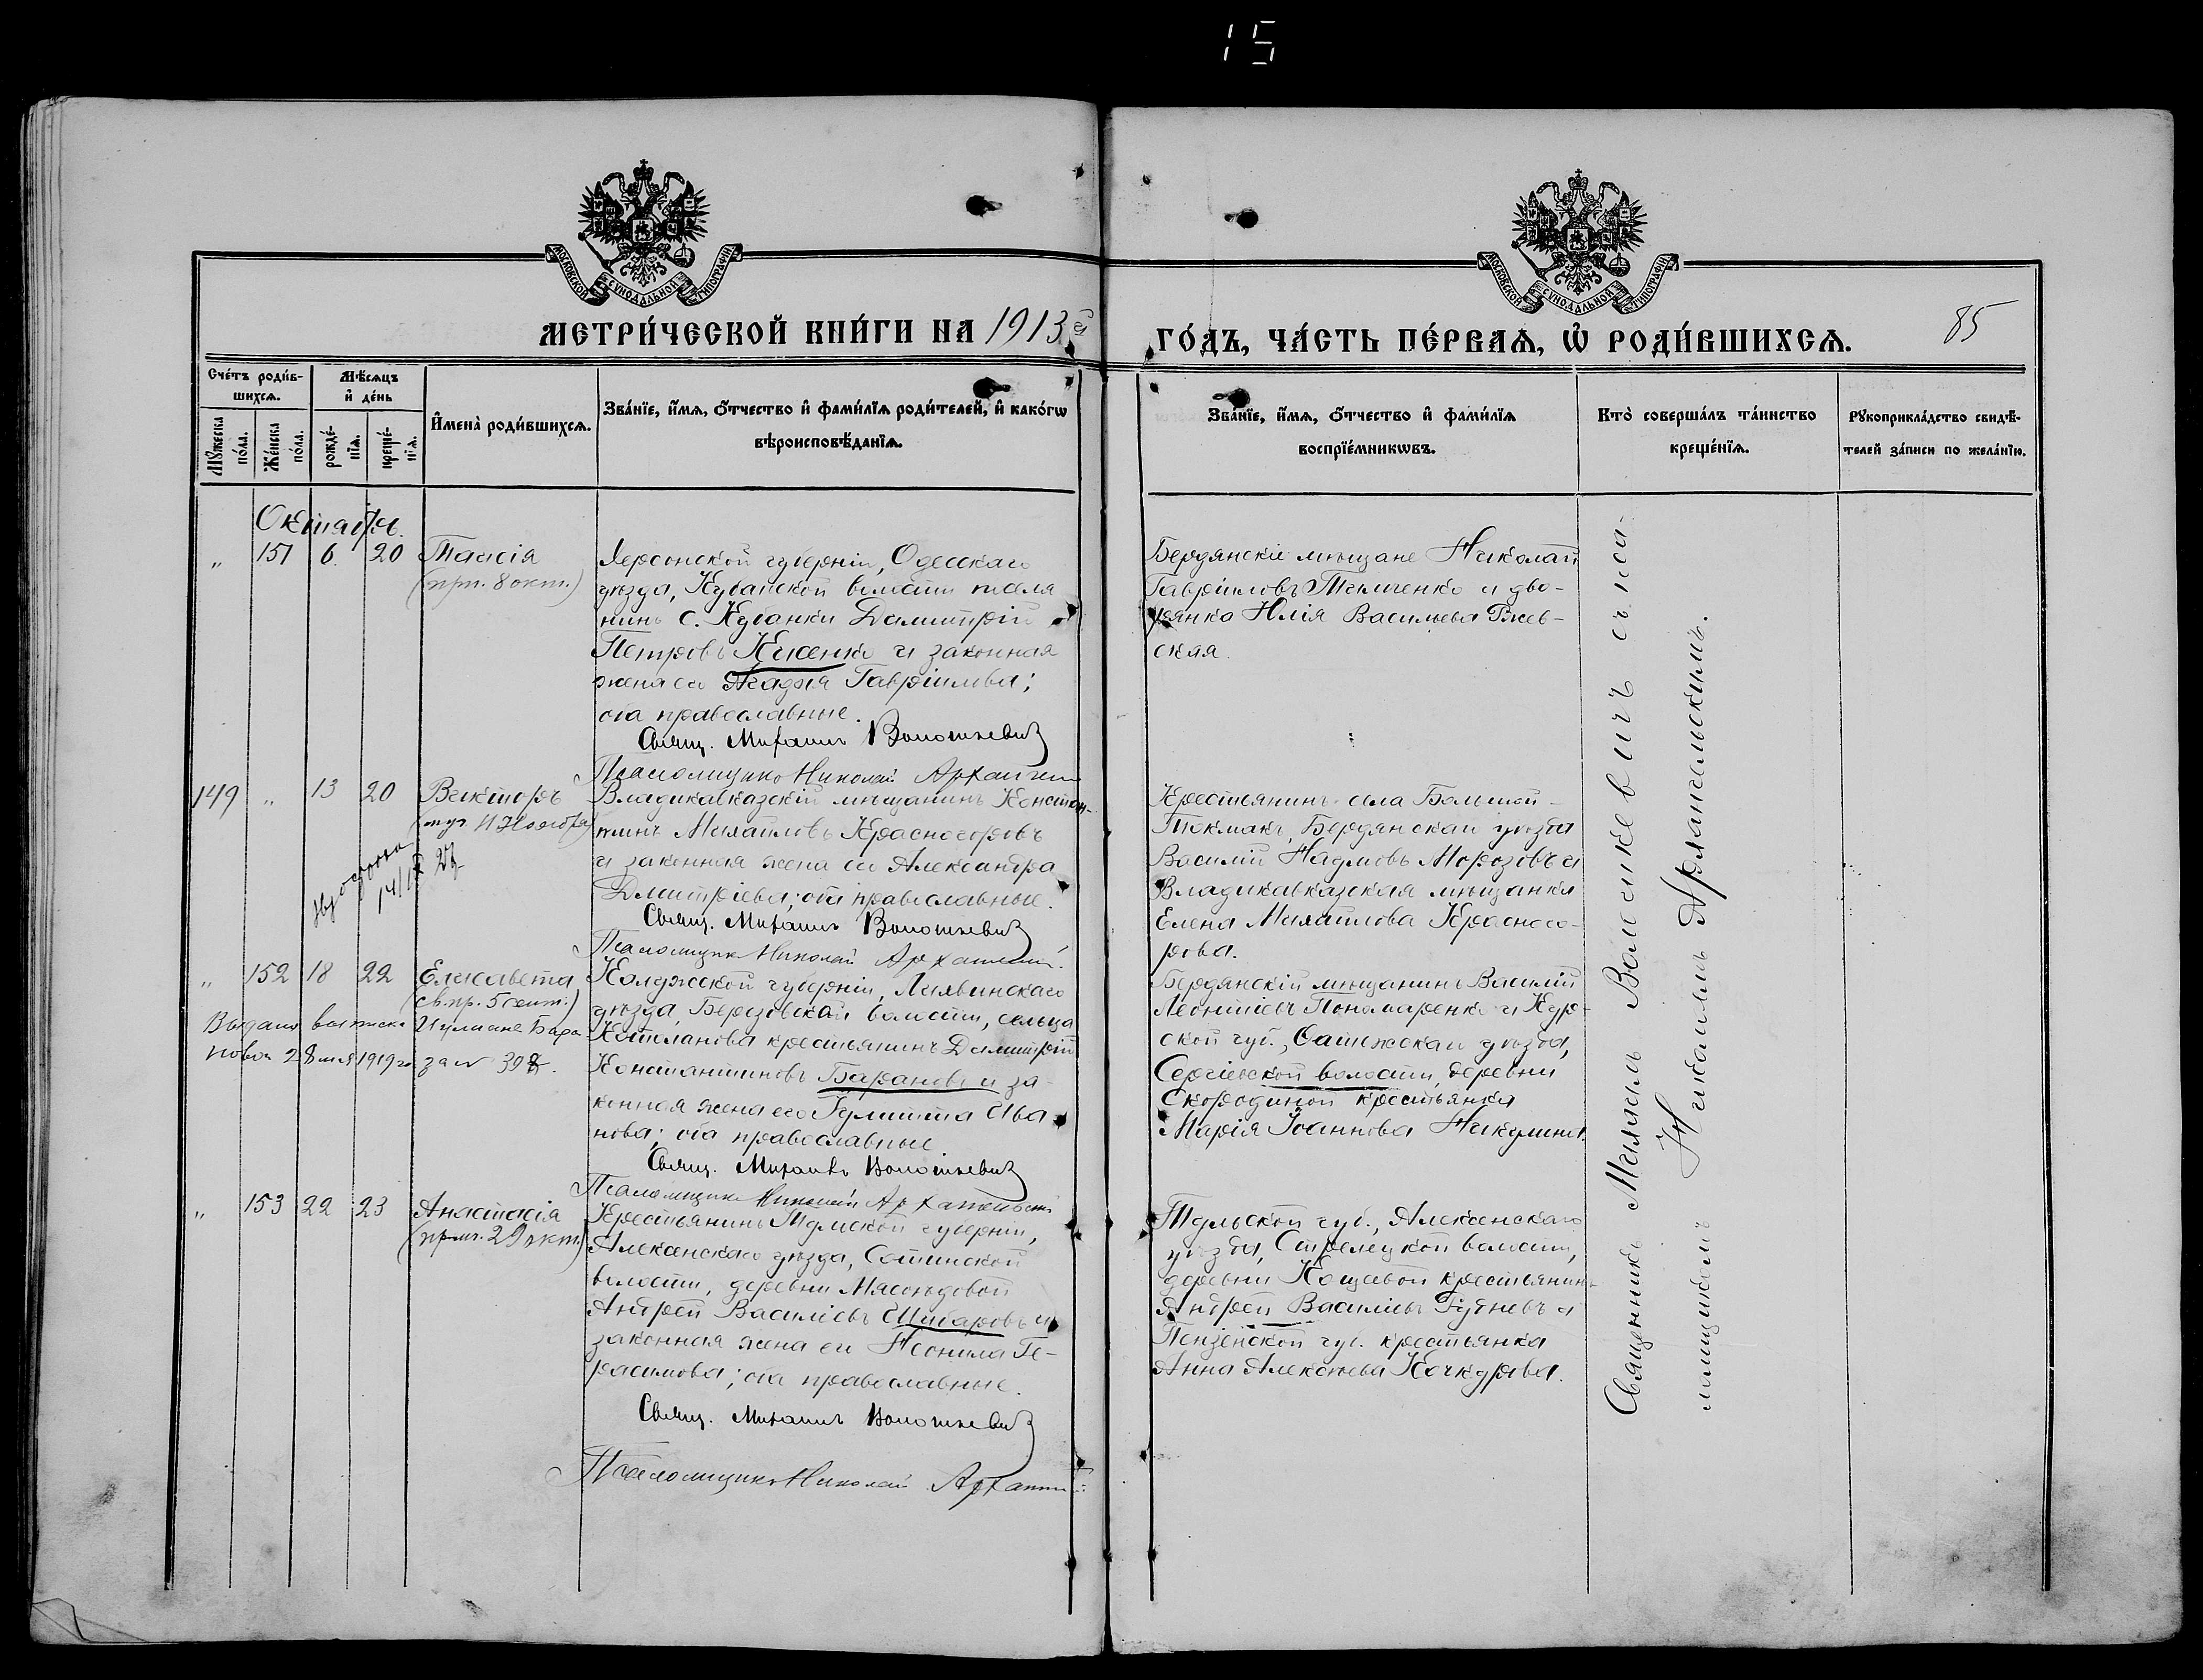 15
МОСКОВСКОЙ СѴНОДАЛЬНОЙ ТИПОГРАФІИ
МОСКОВСКОЙ СѴНОДАЛЬНОЙ ТИПОГРАФІИ
МЕТРИ́ЧЕСКОЙ КНИ́ГИ НА 1913 й
ГО́ДЪ, ЧА́СТЬ ПЕ́РВАѦ, Ѡ҆ РОДИ́ВШИХСѦ.
85
Сче́тъ роди́в-
шихсѧ.
Мꙋ́жеска
по́ла.
Же́нска
по́ла.
Мѣ́сѧцъ
и҆ де́нь
рожде́-
нїѧ.
креще́-
нїѧ.
И҆мена̀ роди́вшихсѧ.
Зва́нїе, и҆́мѧ, ѻ҆́тчество и҆ фами́лїѧ роди́телей, и҆ како́гѡ
вѣроисповѣ́данїѧ.
Зва́нїе, и҆́мѧ, ѻ҆́тчество и҆ фами́лїѧ
воспрїе́мникѡвъ.
Кто̀ соверша́лъ та́инство
креще́нїѧ.
Рꙋкоприкла́дство свидѣ́-
телей за́писи по жела́нїю.
Октябрь.
„ 151 6 20 Таисія
(прп. 8 окт.)
Херсонской губерніи, Одесскаго
уѣзда, Кубанской волости поселя
нинъ с. Кубанки Димитрій
Петровъ и законная
жена его Гавріилова;
оба православные.
Свящ. Михаилъ Волошкевичъ
Псаломщикъ Николай Архангел
Бердянскіе мѣщане Николай
Гавріиловъ и дво-
рянка Юлія Васильева Ржев-
ская.
149 „ 13 20 Викторъ
(муч. 11 Ноября)
14/IX
Владикавказскій мѣщанинъ Констан-
тинъ Михаиловъ Красногоровъ
и законная жена его Александра
Дмитріева; оба православные.
Свящ. Михаилъ Волошкевичъ
Псаломщикъ Николай Архангельскій.
Крестьянинъ села Большой
Токмакъ, Бердянскаго уѣзда
Василій Наумовъ Морозовъ и
Владикавказская мѣщанка
Елена Михаилова Красного-
рова.
„ 152 18 22 Елисавета
(св. пр. 5 сент.)
Выдана выписка Іулианѣ Бара
новой 28 мая 1919 г. за № 398.
Калужской губерніи, Лихвинскаго
уѣзда, Березовской волости, сельца
крестьянинъ Димитрій
Константиновъ Барановъ и за-
конная жена его Іулианія Ива
нова; оба православные
Свящ. Михаилъ Волошкевичъ
Псаломщикъ Николай Архангельскій
Бердянскій мѣщанинъ Василій
Леонтіевъ Пономаренко и Кур-
ской губ., Фатежскаго уѣзда,
Сергіевской волости, деревни
Скородиной крестьянка
Марія Іоаннова Никулина.
„ 153 22 23 Анастасія
(прмч. 29 окт.)
Крестьянинъ Тульской губерніи,
Алексинскаго уѣзда, Сотинской
волости, деревни Мясоѣдовой
Андрей Василіевъ Шибаровъ и
законная жена его Неонила Ге-
расимова; оба православные.
Свящ. Михаилъ Волошкевичъ
Псаломщикъ Николай Архангел
Тульской губ., Алексинскаго
уѣзда, Стрелецкой волости,
деревни Кащеевой крестьянинъ
Андрей Василіевъ Губневъ и
Пензенской губ. крестьянка
Анна Алексѣева Кочкурова.
Священникъ Михаилъ Волошкевичъ съ псал-
ломщикомъ Николаемъ Архангельскимъ.